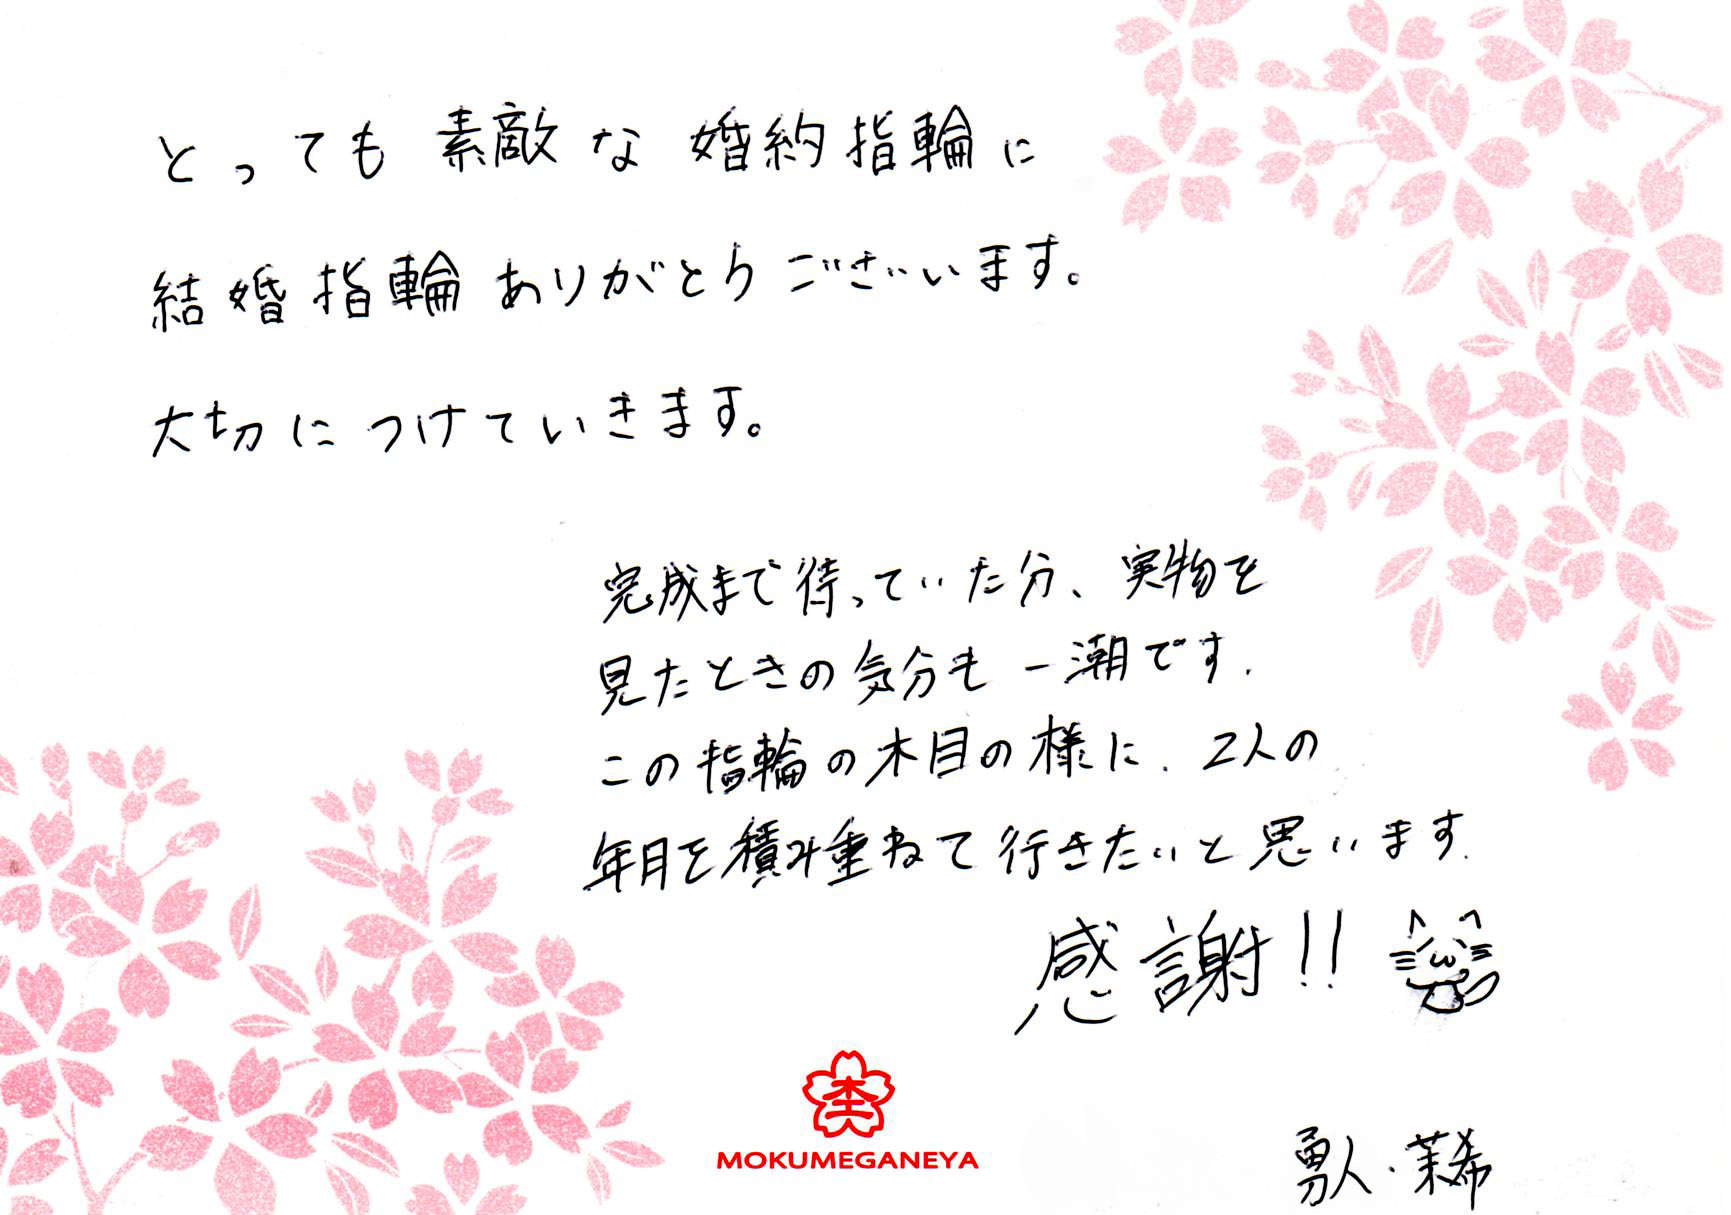 とっても素敵な婚約指輪に
結婚指輪ありがとうございます。
大切につけていきます。
完成まで待っていた分、実物を
見たときの気分も一潮です.
この指輪の木目の様に. 2人の
年月を積み重ねて行きたいと思います.
感謝!!
MOKUMEGANEYA
勇人・茉希